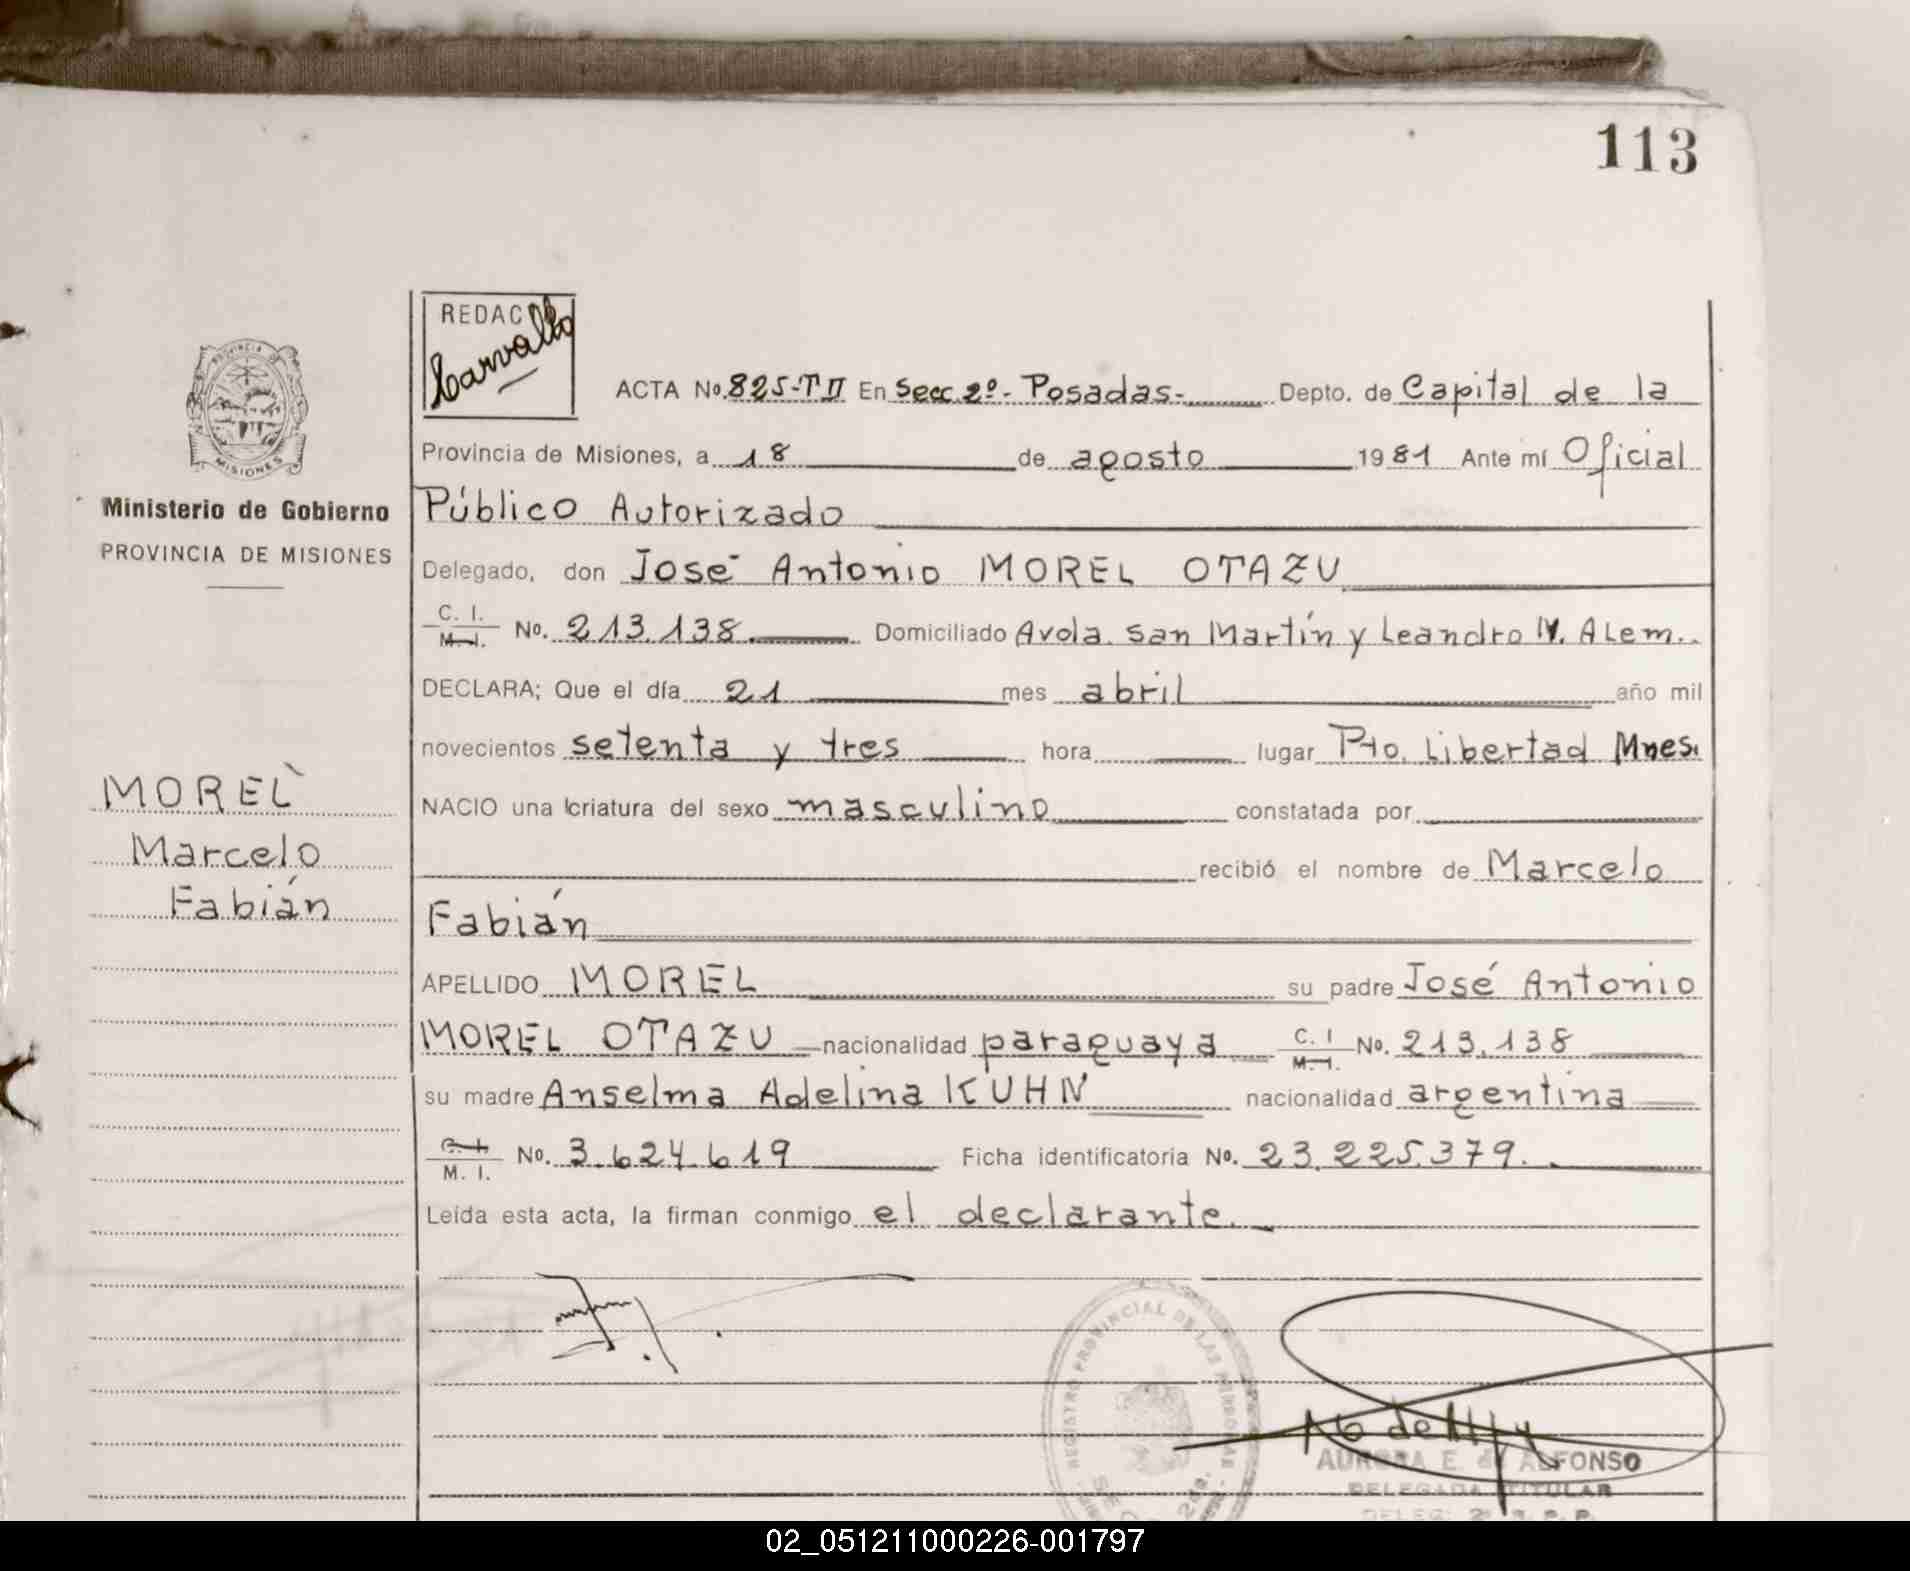 113
REDAC
Carvallo
ACTA No. 825-T II En Secc 2º.- Posadas.- Depto. de Capital de la
Provincia de Misiones, a 18 de agosto 1981 Ante mí Oficial
Público Autorizado
Delegado, don José Antonio MOREL OTAZU
C. I.
M. I. No. 213.138 Domiciliado Avda. San Martín y Leandro N. ALem..
DECLARA; Que el día 21 mes abril año mil
novecientos setenta y tres hora lugar Pto. Libertad Mnes.
NACIO una criatura del sexo masculino constatada por
recibió el nombre de Marcelo
Fabián
APELLIDO MOREL su padre José Antonio
MOREL OTAZU nacionalidad paraguaya C. I
M. I. No. 213.138
su madre Anselma Adelina KUHN nacionalidad argentina
C. I.
M. I. No. 3.624.619 Ficha identificatoria No. 23.225.379.
Leída esta acta, la firman conmigo el declarante.
PROVINCIA DE
MISIONES
Ministerio de Gobierno
PROVINCIA DE MISIONES
MOREL
Marcelo
Fabián
REGISTRO PROVINCIAL DE LAS PERSONAS
AURORA E. de ALFONSO
DELEGADA TITULAR
02_051211000226-001797